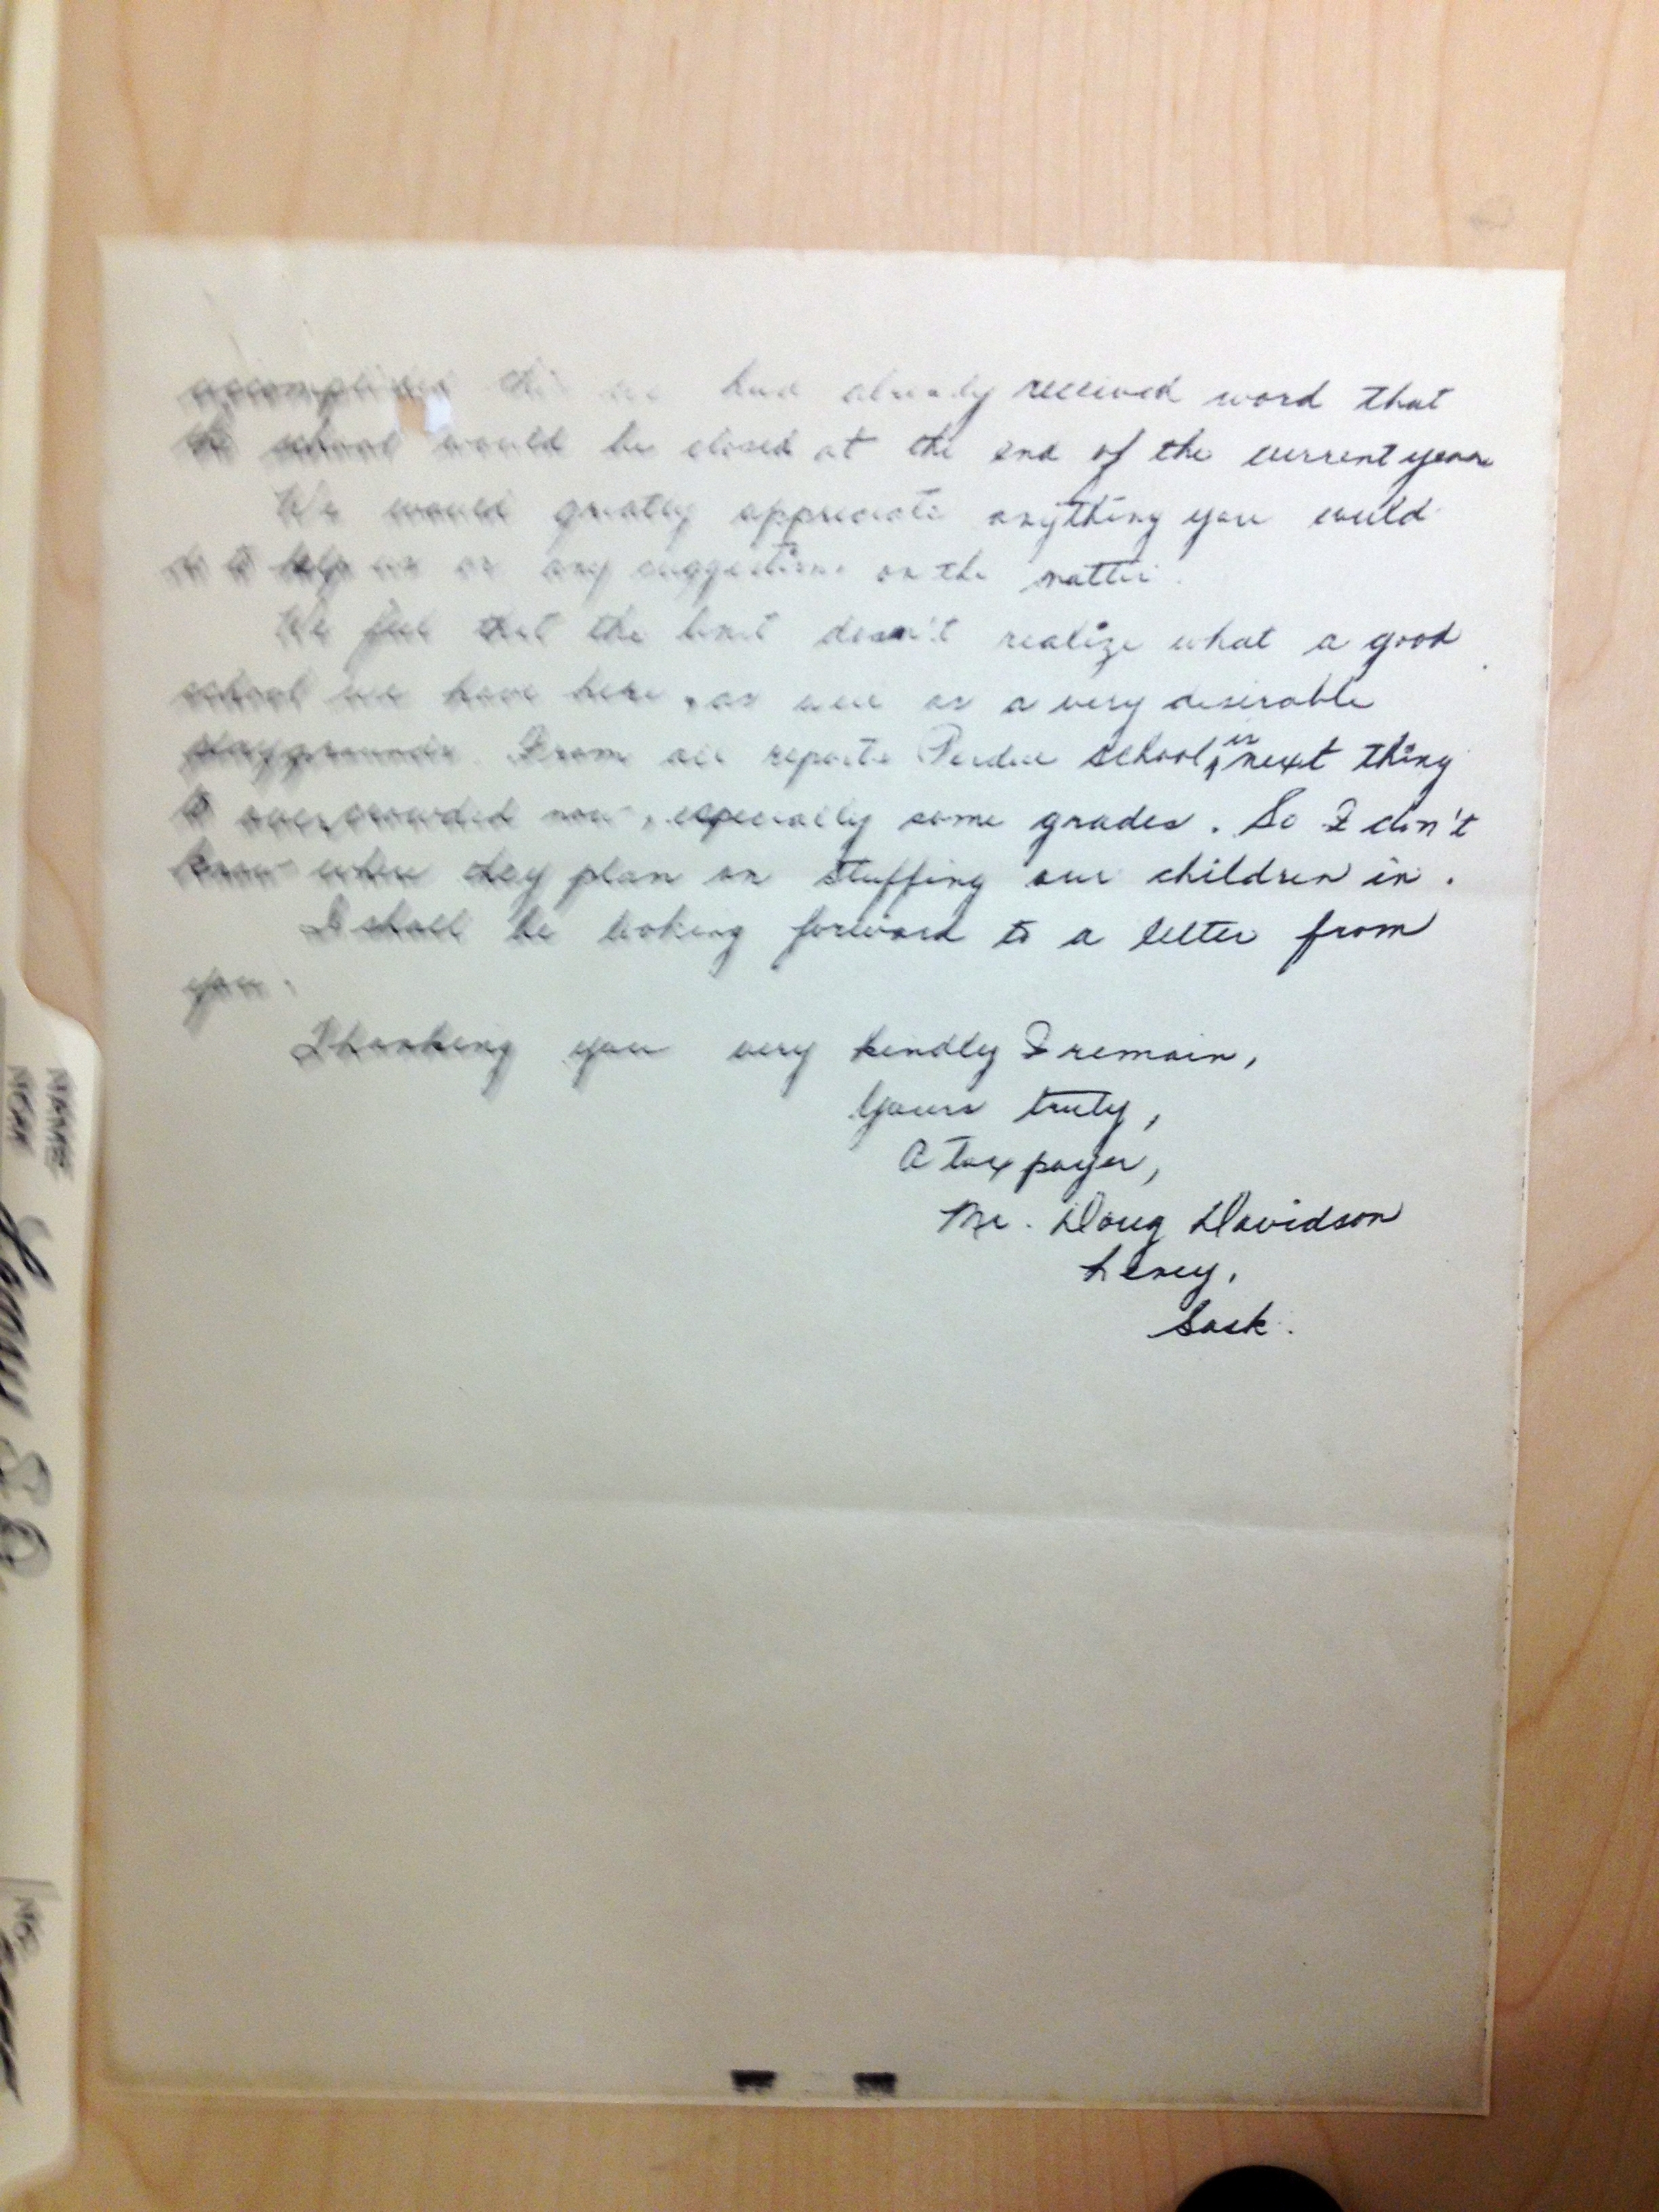 accomplished this we had already received word that
the school would be closed at the end of the current year
We would greatly appreciate anything you could
do to help us or any suggestions on the matter.
We feel that the unit doesn't realize what a good
school we have here, as well as a very desirable
playgrounds. From all reports Perdue school is next thing
to overcrowded now, especially some grades. So I don't
know where they plan on stuffing our children in.
I shall be looking forward to a letter from
you.
Thanking you very kindly I remain,
Yours truly,
A tax payer,
Mr. Doug Davidson
Leney,
Sask.
NAME